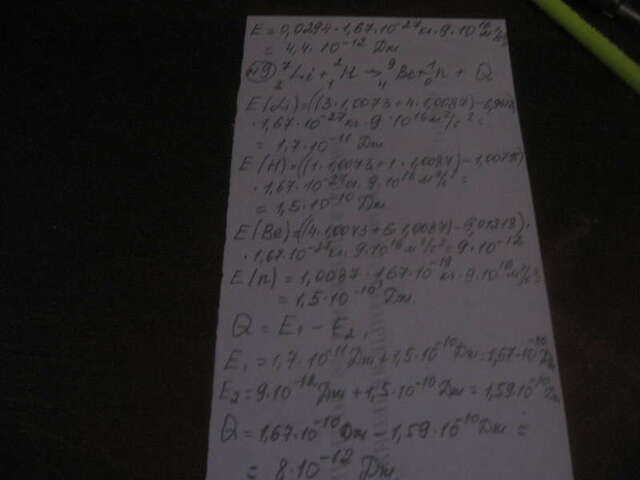 E = 0,0294 · 1,67 · 10⁻²⁷ кг · 9 · 10¹⁶ м²/с²
= 4,4 · 10⁻¹² Дж
№9 ⁷₃Li + ²₁H → ⁹₄Be + ¹₀n + Q
E(Li) = ((3 · 1,0073 + 4 · 1,0087) -
· 1,67 · 10⁻²⁷ кг · 9 · 10¹⁶ м²/с² =
= 1,7 · 10⁻¹¹ Дж
E(H) = ((1 · 1,0073 + 1 · 1,0087) -
· 1,67 · 10⁻²⁷ кг · 9 · 10¹⁶ м²/с² =
= 1,5 · 10⁻¹⁰ Дж
E(Be) = ((4 · 1,0073 + 5 · 1,0087) - 9,01218) ·
· 1,67 · 10⁻²⁷ кг · 9 · 10¹⁶ м²/с² = 9 · 10⁻¹²
E(n) = 1,0087 · 1,67 · 10 кг · 9 · 10¹⁶ м²/с²
= 1,5 · 10⁻¹⁰ Дж.
Q = E₁ - E₂,
E₁ = 1,7 · 10⁻¹¹ Дж + 1,5 · 10⁻¹⁰ Дж = 1,67 · 10⁻¹⁰ Дж
E₂ = 9 · 10⁻¹² Дж + 1,5 · 10⁻¹⁰ Дж = 1,59 · 10⁻¹⁰ Дж
Q = 1,67 · 10⁻¹⁰ Дж - 1,59 · 10⁻¹⁰ Дж =
= 8 · 10⁻¹² Дж.